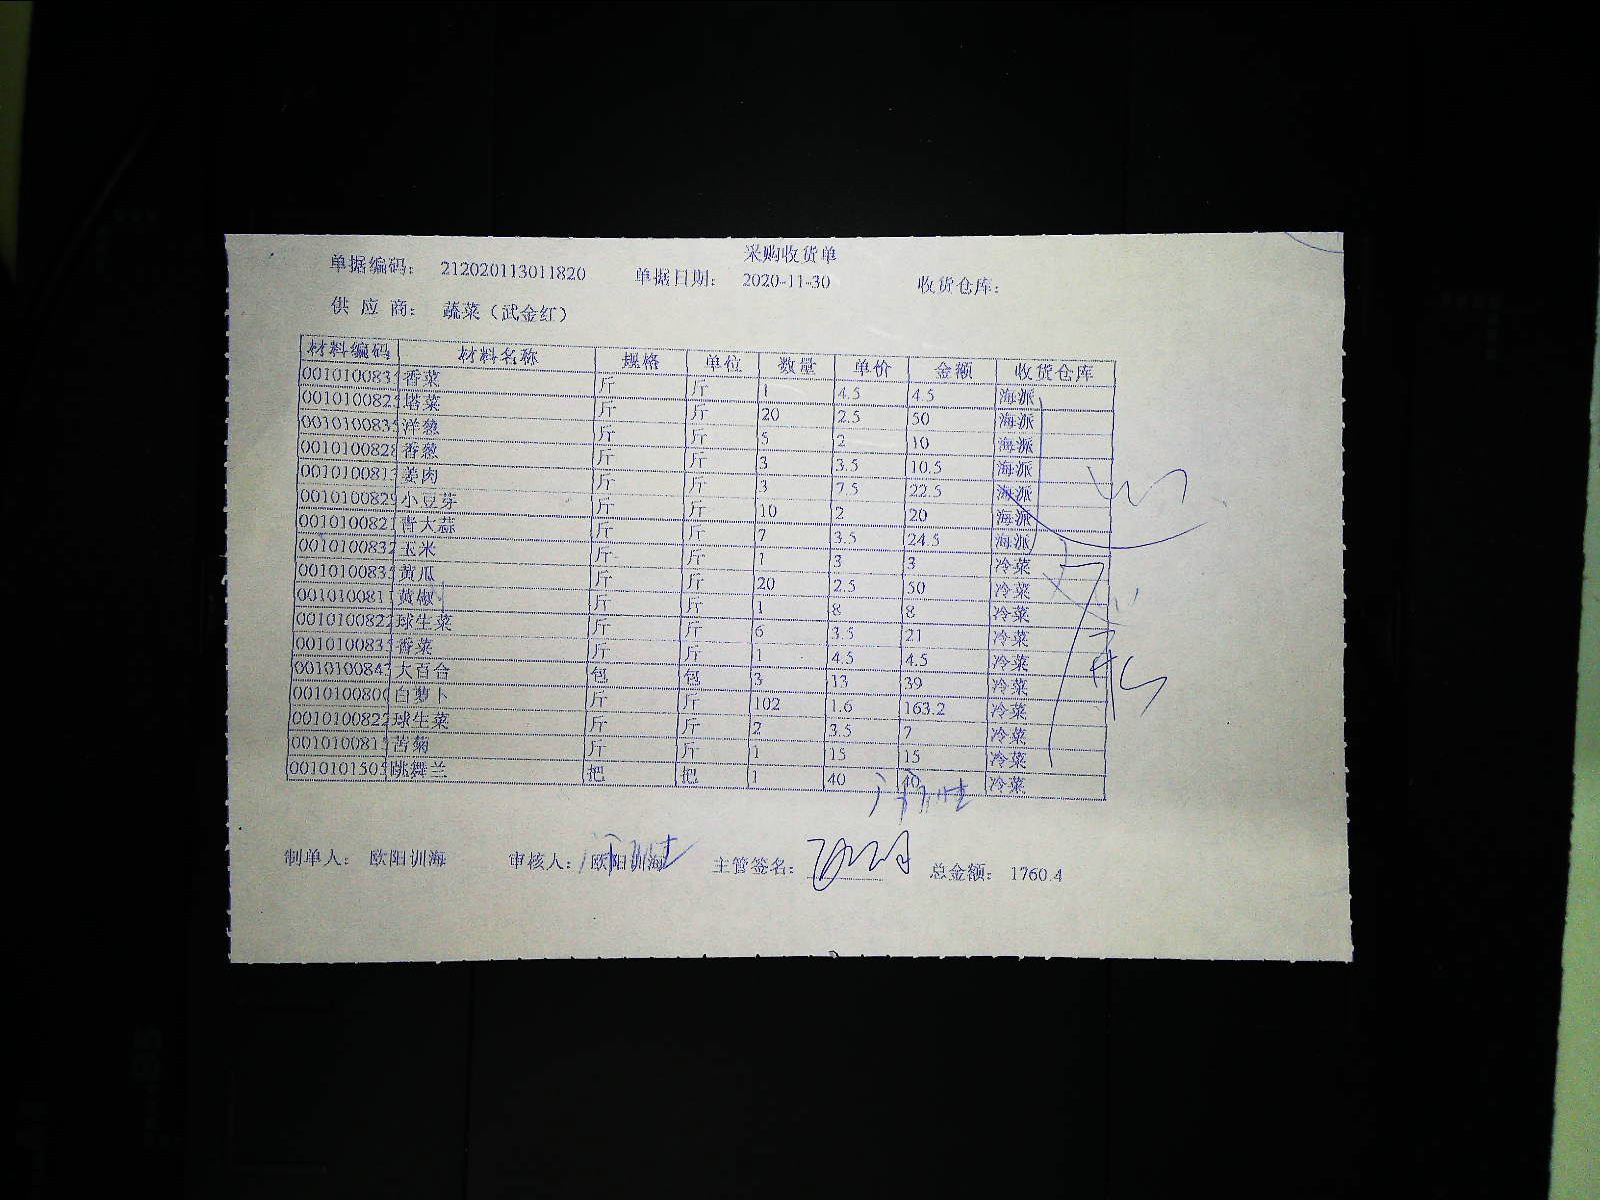 采购收货单
单据编码： 212020113011820 单据日期： 2020-11-30 收货仓库：
供 应 商： 蔬菜（武金红）
材料编码 材料名称 规格 单位 数量 单价 金额 收货仓库
001010083 香菜 斤 斤 1 4.5 4.5 海派
001010082 塔菜 斤 斤 20 2.5 50 海派
001010083 洋葱 斤 斤 5 2 10 海派
001010082 香葱 斤 斤 3 3.5 10.5 海派
001010081 姜肉 斤 斤 3 7.5 22.5 海派
001010082 小豆芽 斤 斤 10 2 20 海派
001010082 青大蒜 斤 斤 7 3.5 24.5 海派
001010083 玉米 斤 斤 1 3 3 冷菜
001010083 黄瓜 斤 斤 20 2.5 50 冷菜
001010081 黄椒 斤 斤 1 8 8 冷菜
001010082 球生菜 斤 斤 6 3.5 21 冷菜
001010083 香菜 斤 斤 1 4.5 4.5 冷菜
001010084 大百合 包 包 3 13 39 冷菜
001010080 白萝卜 斤 斤 102 1.6 163.2 冷菜
001010082 球生菜 斤 斤 2 3.5 7 冷菜
001010081 苦菊 斤 斤 1 15 15 冷菜
001010150 跳舞兰 把 把 1 40 40 冷菜
制单人： 欧阳训海 审核人： 欧阳训海 主管签名： 总金额： 1760.4